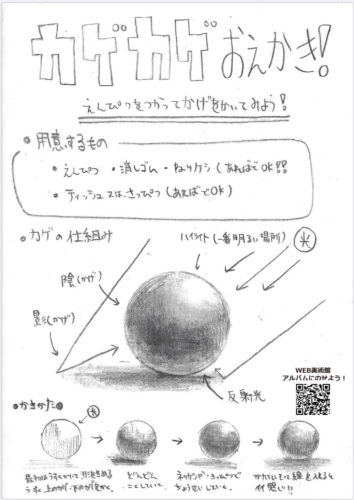 カゲカゲおえかき!
えんぴつをつかってかげをかいてみよう!
・用意するもの
・えんぴつ ・消しゴム・ねりケシ(あればでOK!!
・ティッシュ 又は さっぴつ(あればでOK)
・カゲの仕組み
ハイライト(一番明るい場所)
光
陰(かげ)
影(かげ)
反射光
WEB美術館
アルバムにのせよう!
・かきかた
光
どんどん
こくしていく